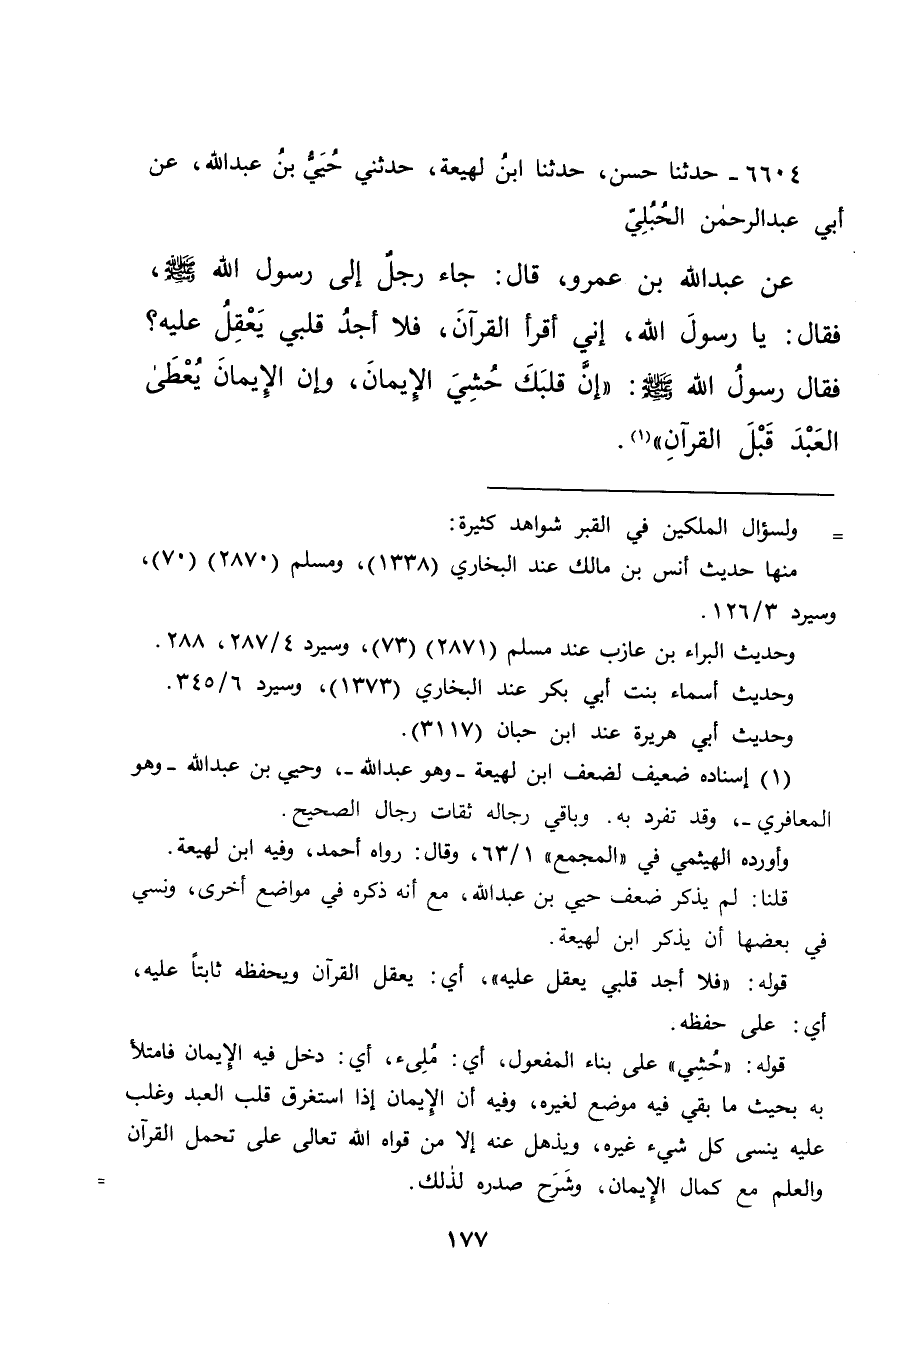 ٦٦٠٤ ـ حدثنا حسن، حدثنا ابنُ لهيعة، حدثني حُيَيُّ بنُ عبدالله، عن
أبي عبدالرحمٰن الحُبُلِيّ
عن عبدالله بن عمرو، قال: جاء رجلٌ إلى رسول الله ﷺ،
فقال: يا رسولَ الله، إني أقرأ القرآنَ، فلا أجدُ قلبي يَعْقِلُ عليه؟
فقال رسولُ الله ﷺ: «إنَّ قلبَكَ حُشِيَ الإيمانَ، وإن الإيمانَ يُعْطَىٰ
العَبْدَ قَبْلَ القرآنِ»(١).
= ولسؤال الملكين في القبر شواهد كثيرة:
منها حديث أنس بن مالك عند البخاري (١٣٣٨)، ومسلم (٢٨٧٠) (٧٠)،
وسيرد ١٢٦/٣.
وحديث البراء بن عازب عند مسلم (٢٨٧١) (٧٣)، وسيرد ٢٨٧/٤، ٢٨٨.
وحديث أسماء بنت أبي بكر عند البخاري (١٣٧٣)، وسيرد ٣٤٥/٦.
وحديث أبي هريرة عند ابن حبان (٣١١٧).
(١) إسناده ضعيف لضعف ابن لهيعة ـ وهو عبدالله ـ، وحيي بن عبدالله ـ وهو
المعافري ـ، وقد تفرد به. وباقي رجاله ثقات رجال الصحيح.
وأورده الهيثمي في «المجمع» ٦٣/١، وقال: رواه أحمد، وفيه ابن لهيعة.
قلنا: لم يذكر ضعف حيي بن عبدالله، مع أنه ذكره في مواضع أخرى، ونسي
في بعضها أن يذكر ابن لهيعة.
قوله: «فلا أجد قلبي يعقل عليه»، أي: يعقل القرآن ويحفظه ثابتاً عليه،
أي: على حفظه.
قوله: «حُشِي» على بناء المفعول، أي: مُلِىء، أي: دخل فيه الإيمان فامتلأ
به بحيث ما بقي فيه موضع لغيره، وفيه أن الإيمان إذا استغرق قلب العبد وغلب
عليه ينسى كل شيء غيره، ويذهل عنه إلا من قواه الله تعالى على تحمل القرآن
والعلم مع كمال الإيمان، وشَرَح صدره لذٰلك. =
١٧٧